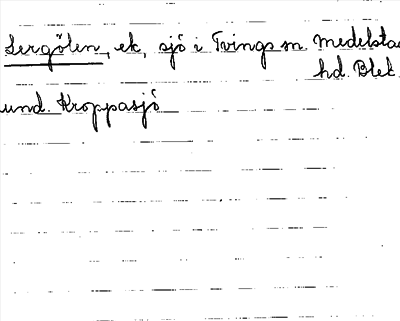 Sergölen, ek, sjö i Tvings sn. Medelsta
hd. Blek.
und. Kroppasjö